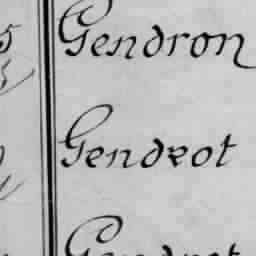 Gendron
Gendrot